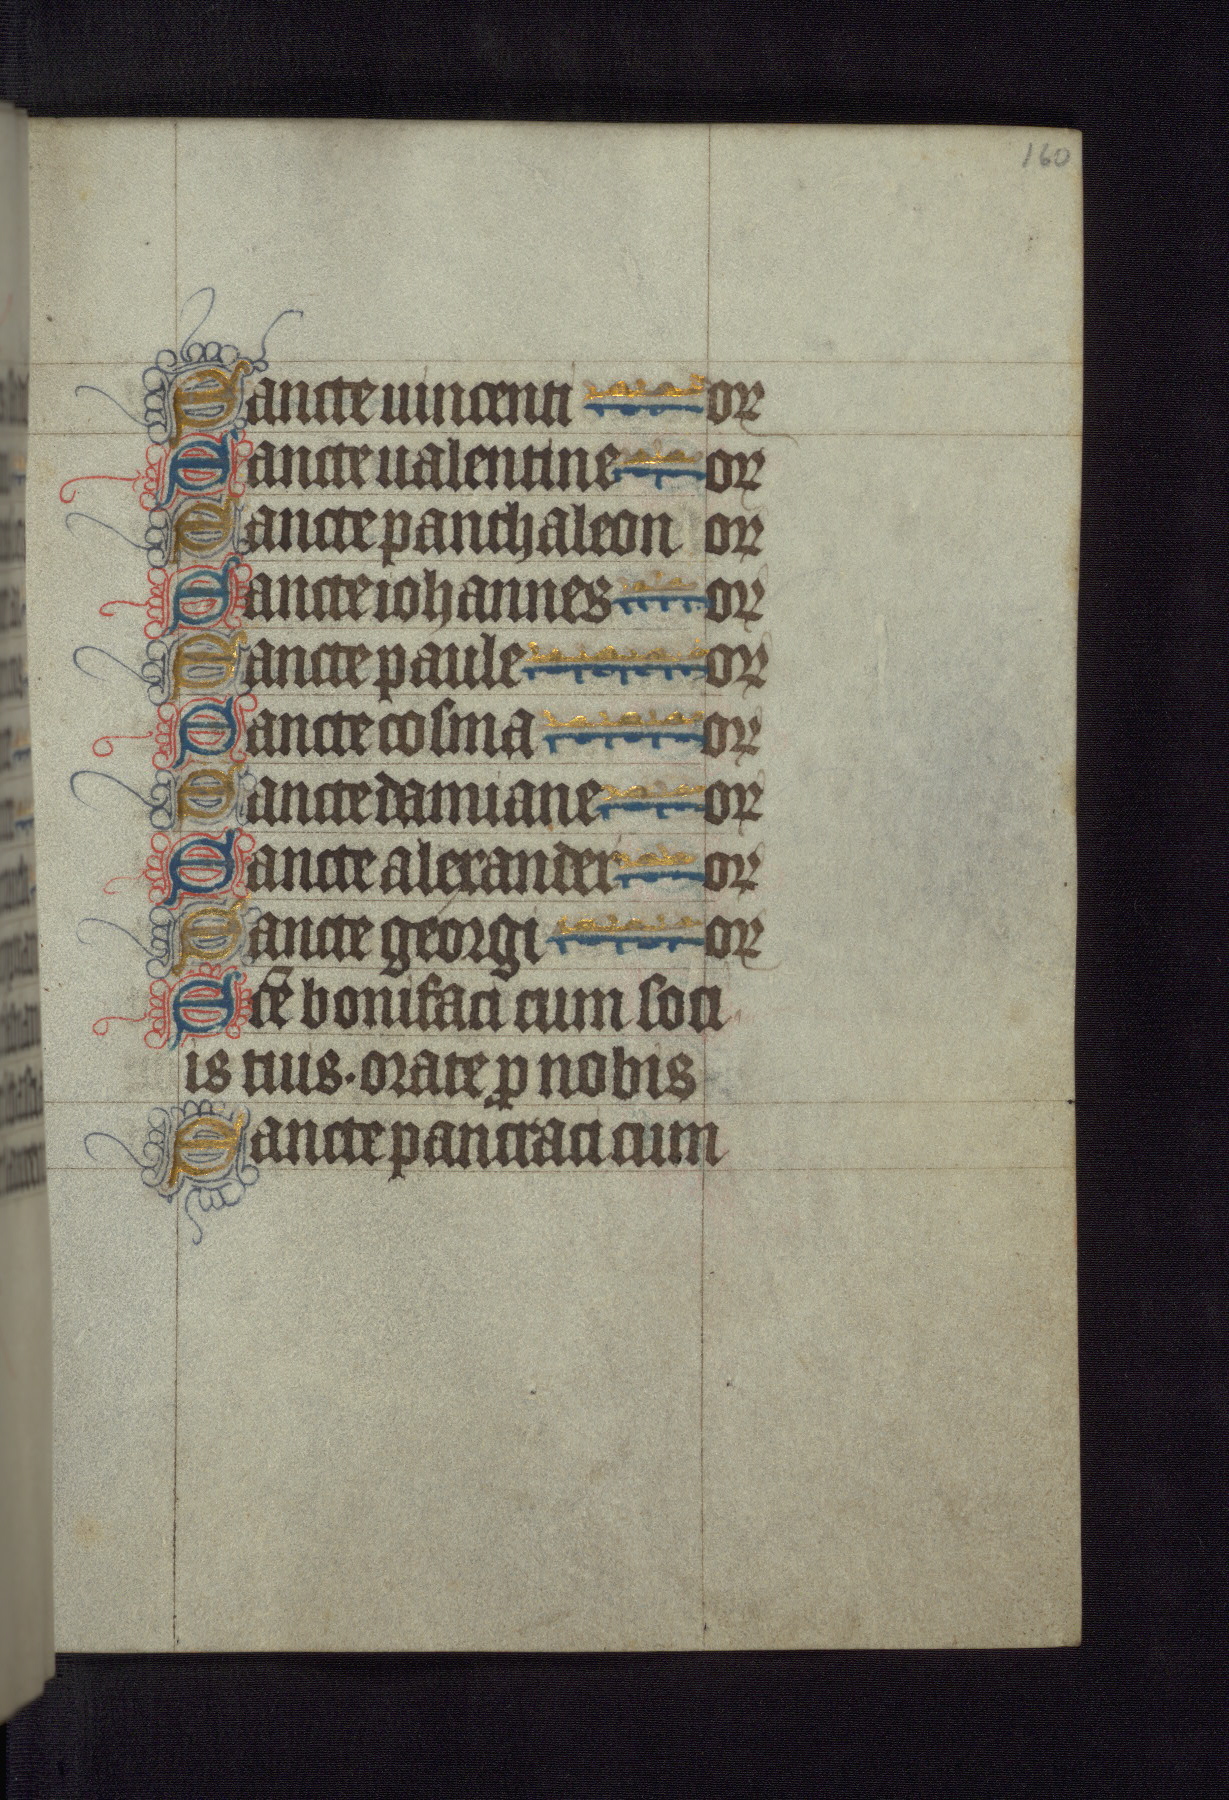 160
Sancte uincenti or
Sancte ualentine or
Sancte panthaleon or
Sancte iohannes or
Sancte paule or
Sancte cosma or
Sancte damiane or
Sancte alexander or
Sancte georgi or
Scē bonifaci cum soci
is tuis. orate ꝓ nobis
Sancte pancraci cum